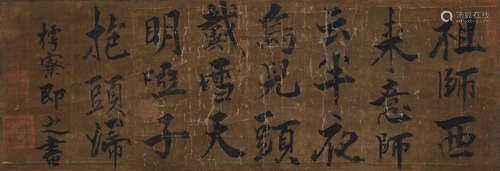 祖師西
来意師
云半夜
烏兒頭
戴雪天
明啞子
抱頭歸
樗寮即之書